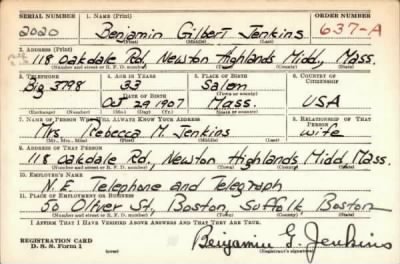 SERIAL NUMBER 1. NAME (Print) ORDER NUMBER
2020 Benjamin Gilbert Jenkins 637-A
(First) (Middle) (Last)
2. ADDRESS (Print)
118 Oakdale Rd, Newton Highlands Midd, Mass.
(Number and street or R. F. D. number) (Town) (County) (State)
3. TELEPHONE 4. AGE IN YEARS 5. PLACE OF BIRTH 6. COUNTRY OF CITIZENSHIP
Big 3798 33 Salem
DATE OF BIRTH (Town or county)
Oct 29 1907 Mass. USA
(Exchange) (Number) (Mo.) (Day) (Yr.) (State or country)
7. NAME OF PERSON WHO WILL ALWAYS KNOW YOUR ADDRESS 8. RELATIONSHIP OF THAT PERSON
Mrs Rebecca M. Jenkins wife
(Mr., Mrs., Miss) (First) (Middle) (Last)
9. ADDRESS OF THAT PERSON
118 Oakdale Rd, Newton Highlands Midd, Mass.
(Number and street or R. F. D. number) (Town) (County) (State)
10. EMPLOYER'S NAME
N.E. Telephone and Telegraph
11. PLACE OF EMPLOYMENT OR BUSINESS
50 Oliver St, Boston, Suffolk, Boston
(Number and street or R. F. D. number) (Town) (County) (State)
I AFFIRM THAT I HAVE VERIFIED ABOVE ANSWERS AND THAT THEY ARE TRUE.
REGISTRATION CARD
D. S. S. Form 1 (over) Benjamin G. Jenkins
(Registrant's signature)